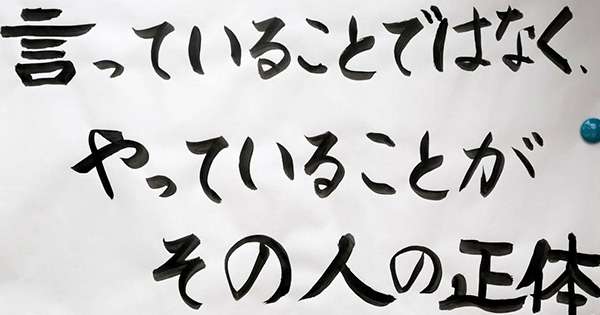 言っていることではなく、
やっていることが
その人の正体